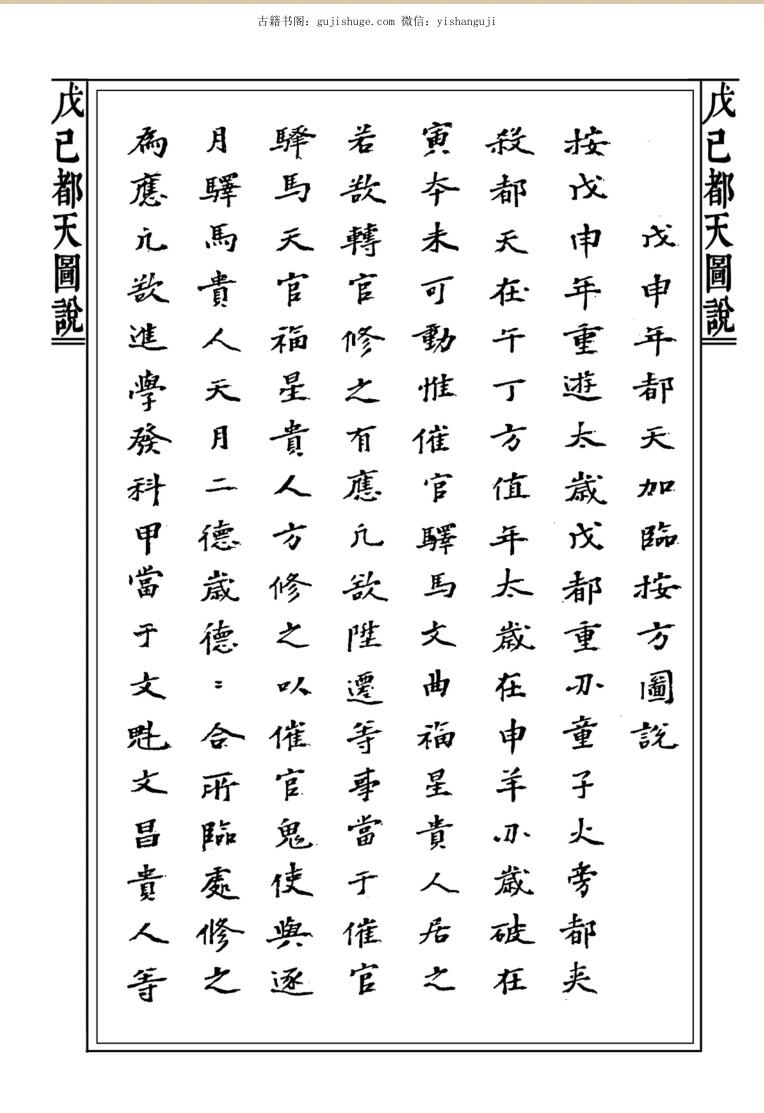 古籍书阁：gujishuge.com 微信：yishanguji
戊己都天圖說
戊申年都天加臨按方圖說
按戊申年重遊太歲戊都重刃童子火旁都夹
殺都天在午丁方值年太歲在申羊刃歲破在
寅夲未可動惟催官驛馬文曲福星貴人居之
若欲轉官修之有應凢欲陞遷等事當于催官
驛馬天官福星貴人方修之以催官鬼使與逐
月驛馬貴人天月二德歲德：合所臨處修之
為應凢欲進學發科甲當于文魁文昌貴人等
戊己都天圖說